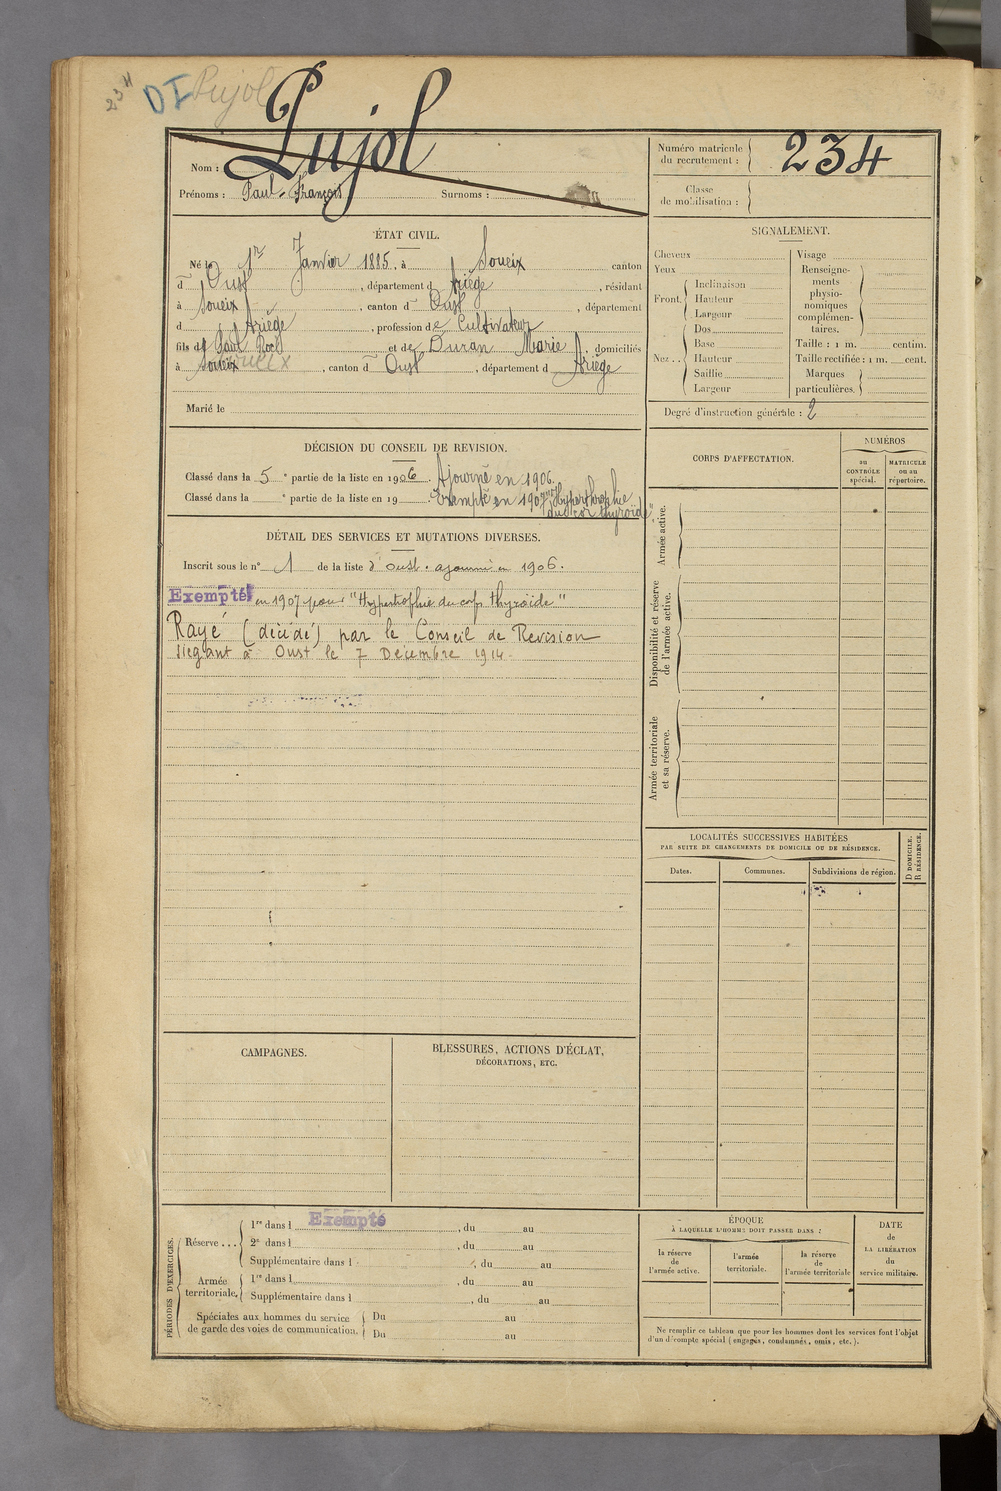 234 DI Pujol
Nom : Pujol
Prénoms : Paul François Surnoms :
Numéro matricule du recrutement : 234
Classe de mobilisation :
ÉTAT CIVIL.
Né le 1er Janvier 1885, à Soueix canton
d Oust, département d Ariège, résidant
à Soueix, canton d Oust, département
d Ariège, profession de Cultivateur
fils de Paul Roch et de Duran Marie, domiciliés
à Soueix, canton d Oust, département d Ariège
Marié le
SIGNALEMENT.
Cheveux
Yeux
Front. Inclinaison
Hauteur
Largeur
Nez.. Dos
Base
Hauteur
Saillie
Largeur
Visage
Renseigne-
ments
physio-
nomiques
complémen-
taires.
Taille : 1 m. centim.
Taille rectifiée : 1 m. cent.
Marques
particulières.
Degré d'instruction générale : 2
DÉCISION DU CONSEIL DE REVISION.
Classé dans la 5e partie de la liste en 1906. Ajourné en 1906.
Classé dans la e partie de la liste en 19 Exempté en 1907 pour "Hypertrophie
du corps thyroïde"
DÉTAIL DES SERVICES ET MUTATIONS DIVERSES.
Inscrit sous le n° 1 de la liste d'Oust. ajourné en 1906.
Exempté en 1907 pour "Hypertrophie du corps thyroïde"
Rayé (décédé) par le Conseil de Revision
siégant à Oust le 7 Décembre 1914.
CORPS D'AFFECTATION.
NUMÉROS
au CONTRÔLE spécial.
MATRICULE ou au répertoire.
Armée active.
Disponibilité et réserve de l'armée active.
Armée territoriale et sa réserve.
LOCALITÉS SUCCESSIVES HABITÉES
PAR SUITE DE CHANGEMENTS DE DOMICILE OU DE RÉSIDENCE.
Dates. Communes. Subdivisions de région.
D DOMICILE.
R RÉSIDENCE.
CAMPAGNES.
BLESSURES, ACTIONS D'ÉCLAT,
DÉCORATIONS, ETC.
PÉRIODES D'EXERCICES.
Réserve... 1re dans l Exempté, du au
2e dans l, du au
Supplémentaire dans l, du au
Armée territoriale. 1re dans l, du au
Supplémentaire dans l, du au
Spéciales aux hommes du service
de garde des voies de communication. Du au
Du au
ÉPOQUE
À LAQUELLE L'HOMME DOIT PASSER DANS :
la réserve de l'armée active.
l'armée territoriale.
la réserve de l'armée territoriale
DATE
de
LA LIBÉRATION
du
service militaire.
Ne remplir ce tableau que pour les hommes dont les services font l'objet
d'un décompte spécial (engagés, condamnés, omis, etc.).